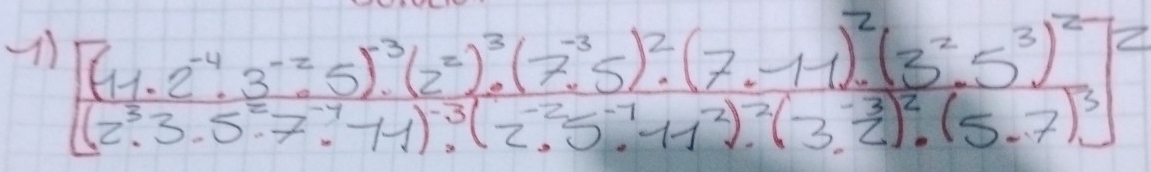 1) [(11·2⁻⁴·3⁻²·5)⁻³·(2²)³·(7⁻³·5)²·(7·11)²·(3²·5³)²]²
(2³·3·5²·7⁻¹·11)⁻³·(2⁻²·5⁻¹·11²)²·(3·2⁻³)²·(5·7)³